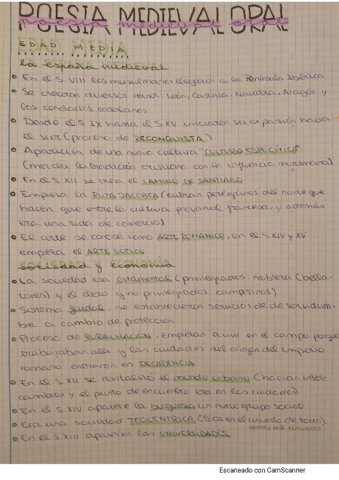 POESIA MEDIEVAL ORAL
poesia medieval oral
EDAD MEDIA
la españa medieval
En el S. VIII los musulmanes llegaron a la Península Ibérica
Se crearon diversos León, Castilla, Navarra, Aragón y
los condados catalanes
Desde el S IX hasta el S. XV iniciaron su expansión hacia
el sur (proceso de RECONQUISTA)
Aparición de una nueva cultura "CULTURA ESPECÍFICA"
(mezcla la tradición cristiana con la influencia musulmana)
En el S. XII se crea el CAMINO DE SANTIAGO
Empieza la RUTA JACOBEA (entran peregrinos del norte que
hacen que entre la cultura provenzal francesa, y además
era una ruta de comercio)
El arte se conoce como ARTE ROMÁNICO, en el S. XIV y XV
empieza el ARTE GÓTICO
sociedad y economía
La sociedad era ESTAMENTAL (privilegiados, nobleza (bella-
tores) y el clero y no privilegiados campesinos)
Sistema feudal, se establecieron servicios de de servidum-
bre a cambio de protección
Proceso de RURALIZACIÓN, empiezan a vivir en el campo porque
trabajaban allí y las ciudades del origen del imperio
romano entraron en DECADENCIA
En el S. XII se revitalizó el mundo urbano (hacían inter-
cambios y el punto de encuentro era en las ciudades)
En el S. XIV aparece la burguesía un nuevo grupo social
Era una sociedad TEOCÉNTRICA (Dios en el centro de todo)
En el S. XIII aparecen las UNIVERSIDADES
Escaneado con CamScanner